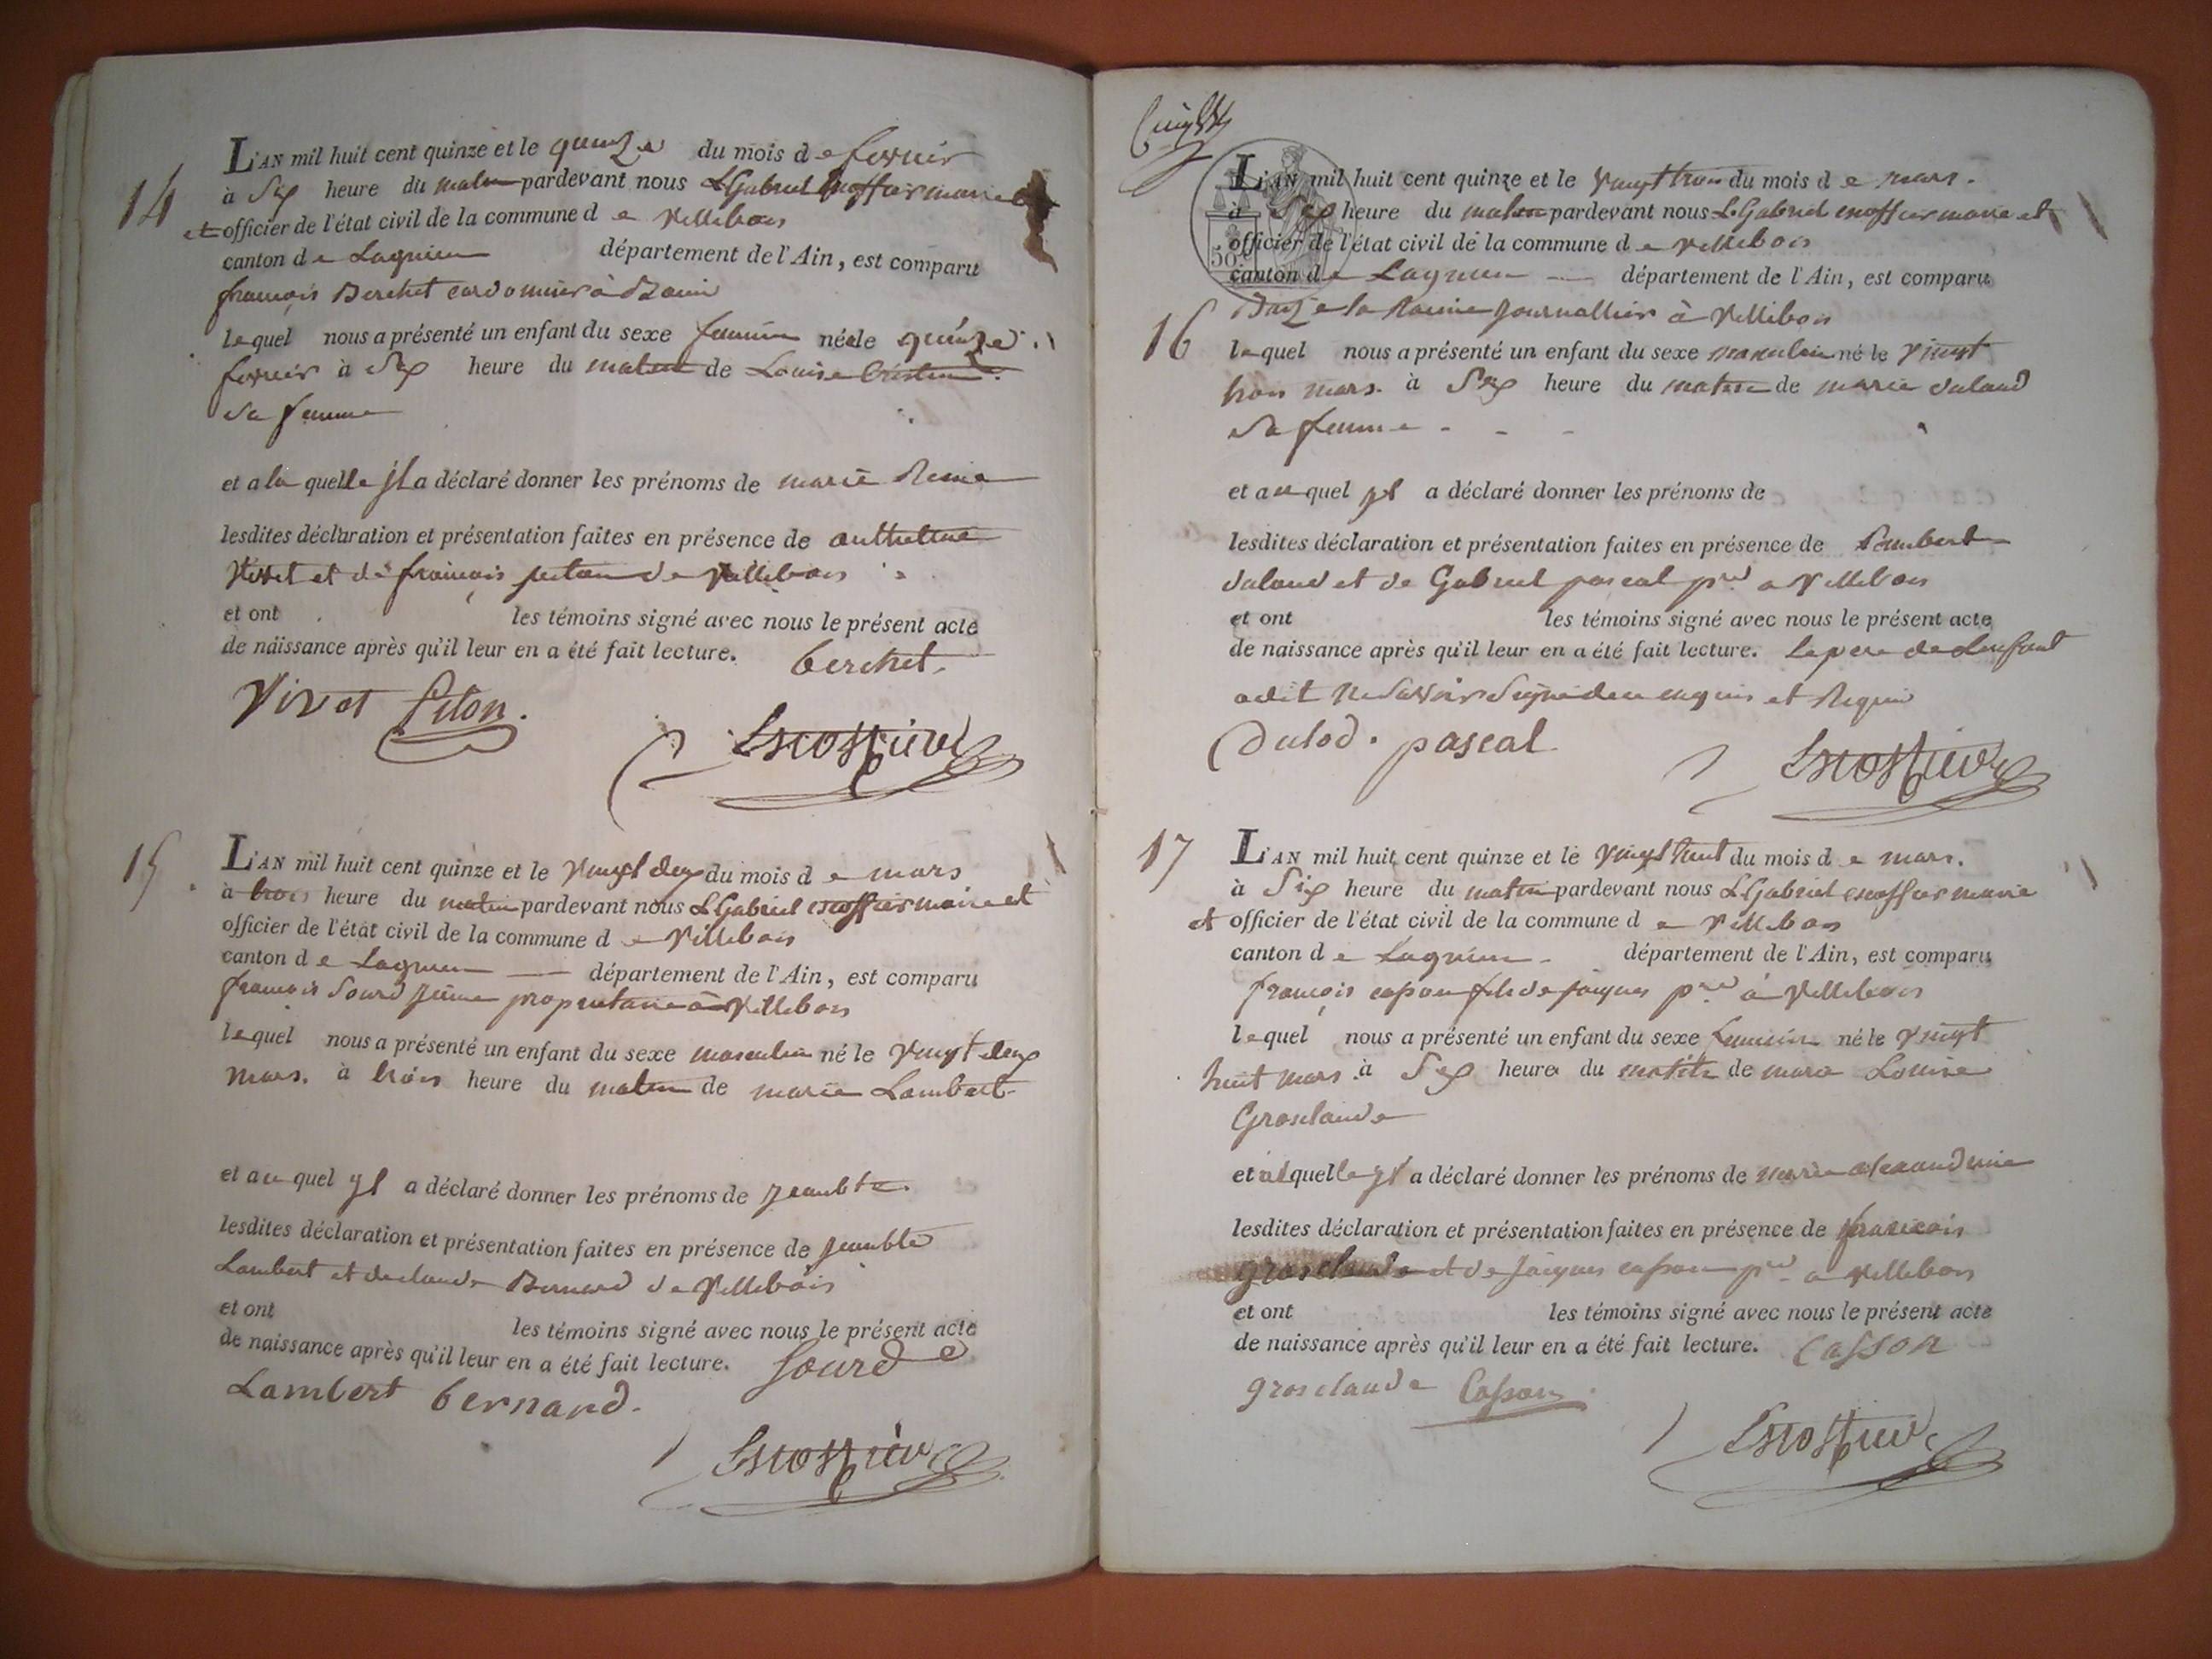 14
L'AN mil huit cent quinze et le quinze du mois de fevrier
à Six heure du matin pardevant nous L Gabriel Escoffier maire
et officier de l'état civil de la commune de Villebois
canton de Lagnieu département de l'Ain, est comparu
françois Berchet cordonnier à
lequel nous a présenté un enfant du sexe feminin née le quinze
fevrier à Six heure du matin de Louise
sa femme
et a la quelle jl a déclaré donner les prénoms de marie Reine
lesdites déclaration et présentation faites en présence de anthelme
Vivet et de françois de Villebois
et ont les témoins signé avec nous le présent acte
de naissance après qu'il leur en a été fait lecture. berchet
Vivet
Escoffier
15
L'AN mil huit cent quinze et le Vingt deux du mois de mars
à trois heure du matin pardevant nous L Gabriel escoffier maire et
officier de l'état civil de la commune de Villebois
canton de Lagnieu département de l'Ain, est comparu
françois Sourd jeune proprietaire à Villebois
lequel nous a présenté un enfant du sexe masculin né le Vingt deux
mars. à trois heure du matin de marie Lambert
et au quel yl a déclaré donner les prénoms de jeanbte
lesdites déclaration et présentation faites en présence de jeanbte
Lambert et de claude Bernard de Villebois
et ont les témoins signé avec nous le présent acte
de naissance après qu'il leur en a été fait lecture. Sourd
Lambert bernard.
Escoffier
16
L'AN mil huit cent quinze et le Vingt trois du mois de mars.
à Six heure du matin pardevant nous L. Gabriel escoffier maire et
officier de l'état civil de la commune de Villebois
canton de Lagnieu département de l'Ain, est comparu
journallier à Villebois
lequel nous a présenté un enfant du sexe masculin né le Vingt
trois mars. à Six heure du matin de marie dulaud
sa femme
et au quel yl a déclaré donner les prénoms de
lesdites déclaration et présentation faites en présence de
dulaud et de Gabriel pascal pre a Villebois
et ont les témoins signé avec nous le présent acte
de naissance après qu'il leur en a été fait lecture. Le pere de Lenfant
a dit ne Savoir Signé de ce enquis et Requis
Dulod. pascal
Escoffier
17
L'AN mil huit cent quinze et le Vingt huit du mois de mars.
à Six heure du matin pardevant nous L Gabriel escoffier maire
et officier de l'état civil de la commune de Villebois
canton de Lagnieu département de l'Ain, est comparu
françois casson fils de jacques pre à Villebois
lequel nous a présenté un enfant du sexe feminin né le Vingt
huit mars à Six heure du matin de marie Louise
Grosclaude
et a laquelle yl a déclaré donner les prénoms de marie alexandrine
lesdites déclaration et présentation faites en présence de françois
grosclaude et de jacques casson pre a Villebois
et ont les témoins signé avec nous le présent acte
de naissance après qu'il leur en a été fait lecture. Casson
grosclaude Casson
Escoffier